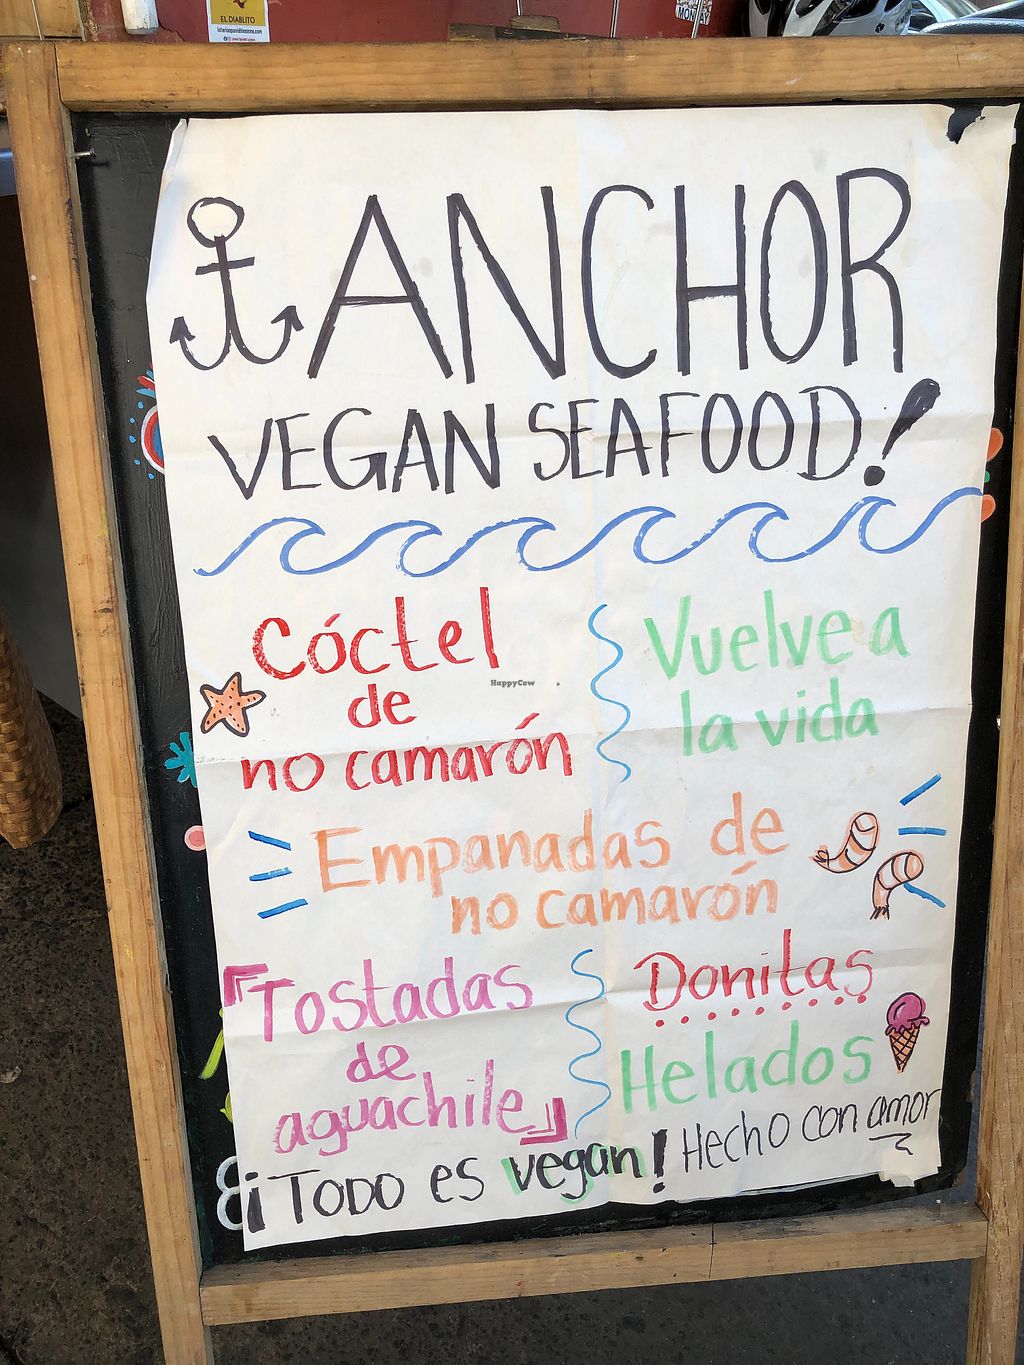 EL DIABLITO
MONDAY
ANCHOR
VEGAN SEAFOOD!
Cóctel
de
no camarón
Vuelve a
la vida
HappyCow
Empanadas de
no camarón
Tostadas
de
aguachile
Donitas
Helados
¡TODO es vegan! Hecho con amor